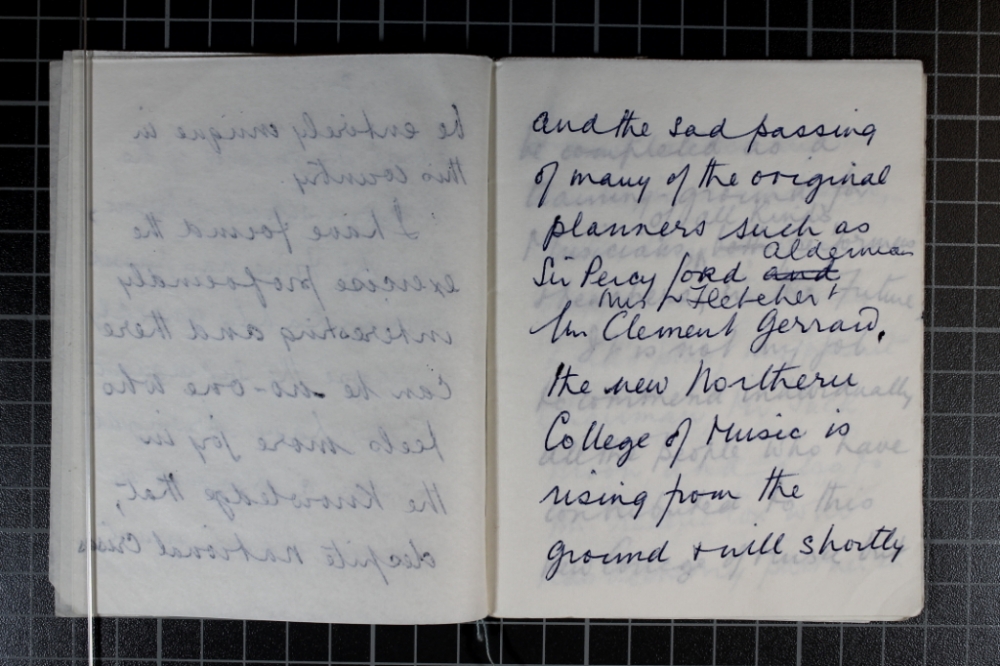 be entirely unique in
this country.
I have found the
exercise profoundly
interesting and there
can be no-one who
feels more joy in
the knowledge that,
despite national Crises
and the sad passing
of many of the original
planners such as
Alderman
Sir Percy Lord and
Mrs Fletcher +
Mr Clement Gerrard,
the new Northern
College of Music is
rising from the
ground + will shortly